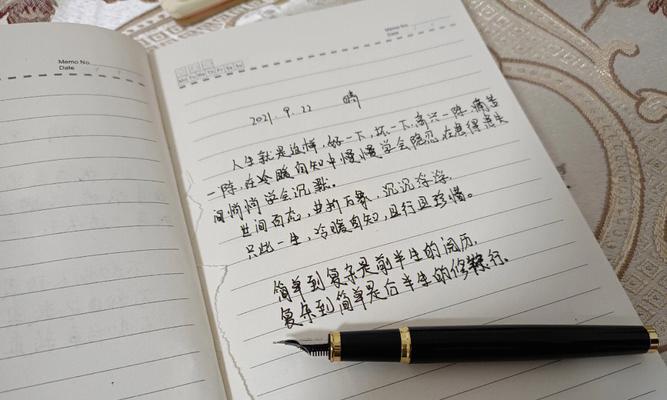 Memo No.
Date
Memo No.
Date
Mo Tu We Th Fr Sa Su
2021.9.22 晴
人生就是这样,好一下,坏一下,高兴一阵,痛苦
一阵,在冷暖自知中慢慢学会隐忍,在患得患失
间悄悄学会沉默。
世间百态,世折百暴,沉沉浮浮,
只此一生,冷暖自知,且行且珍惜。
简单到复杂是前半生的阅历,
复杂到简单是后半生的修行。